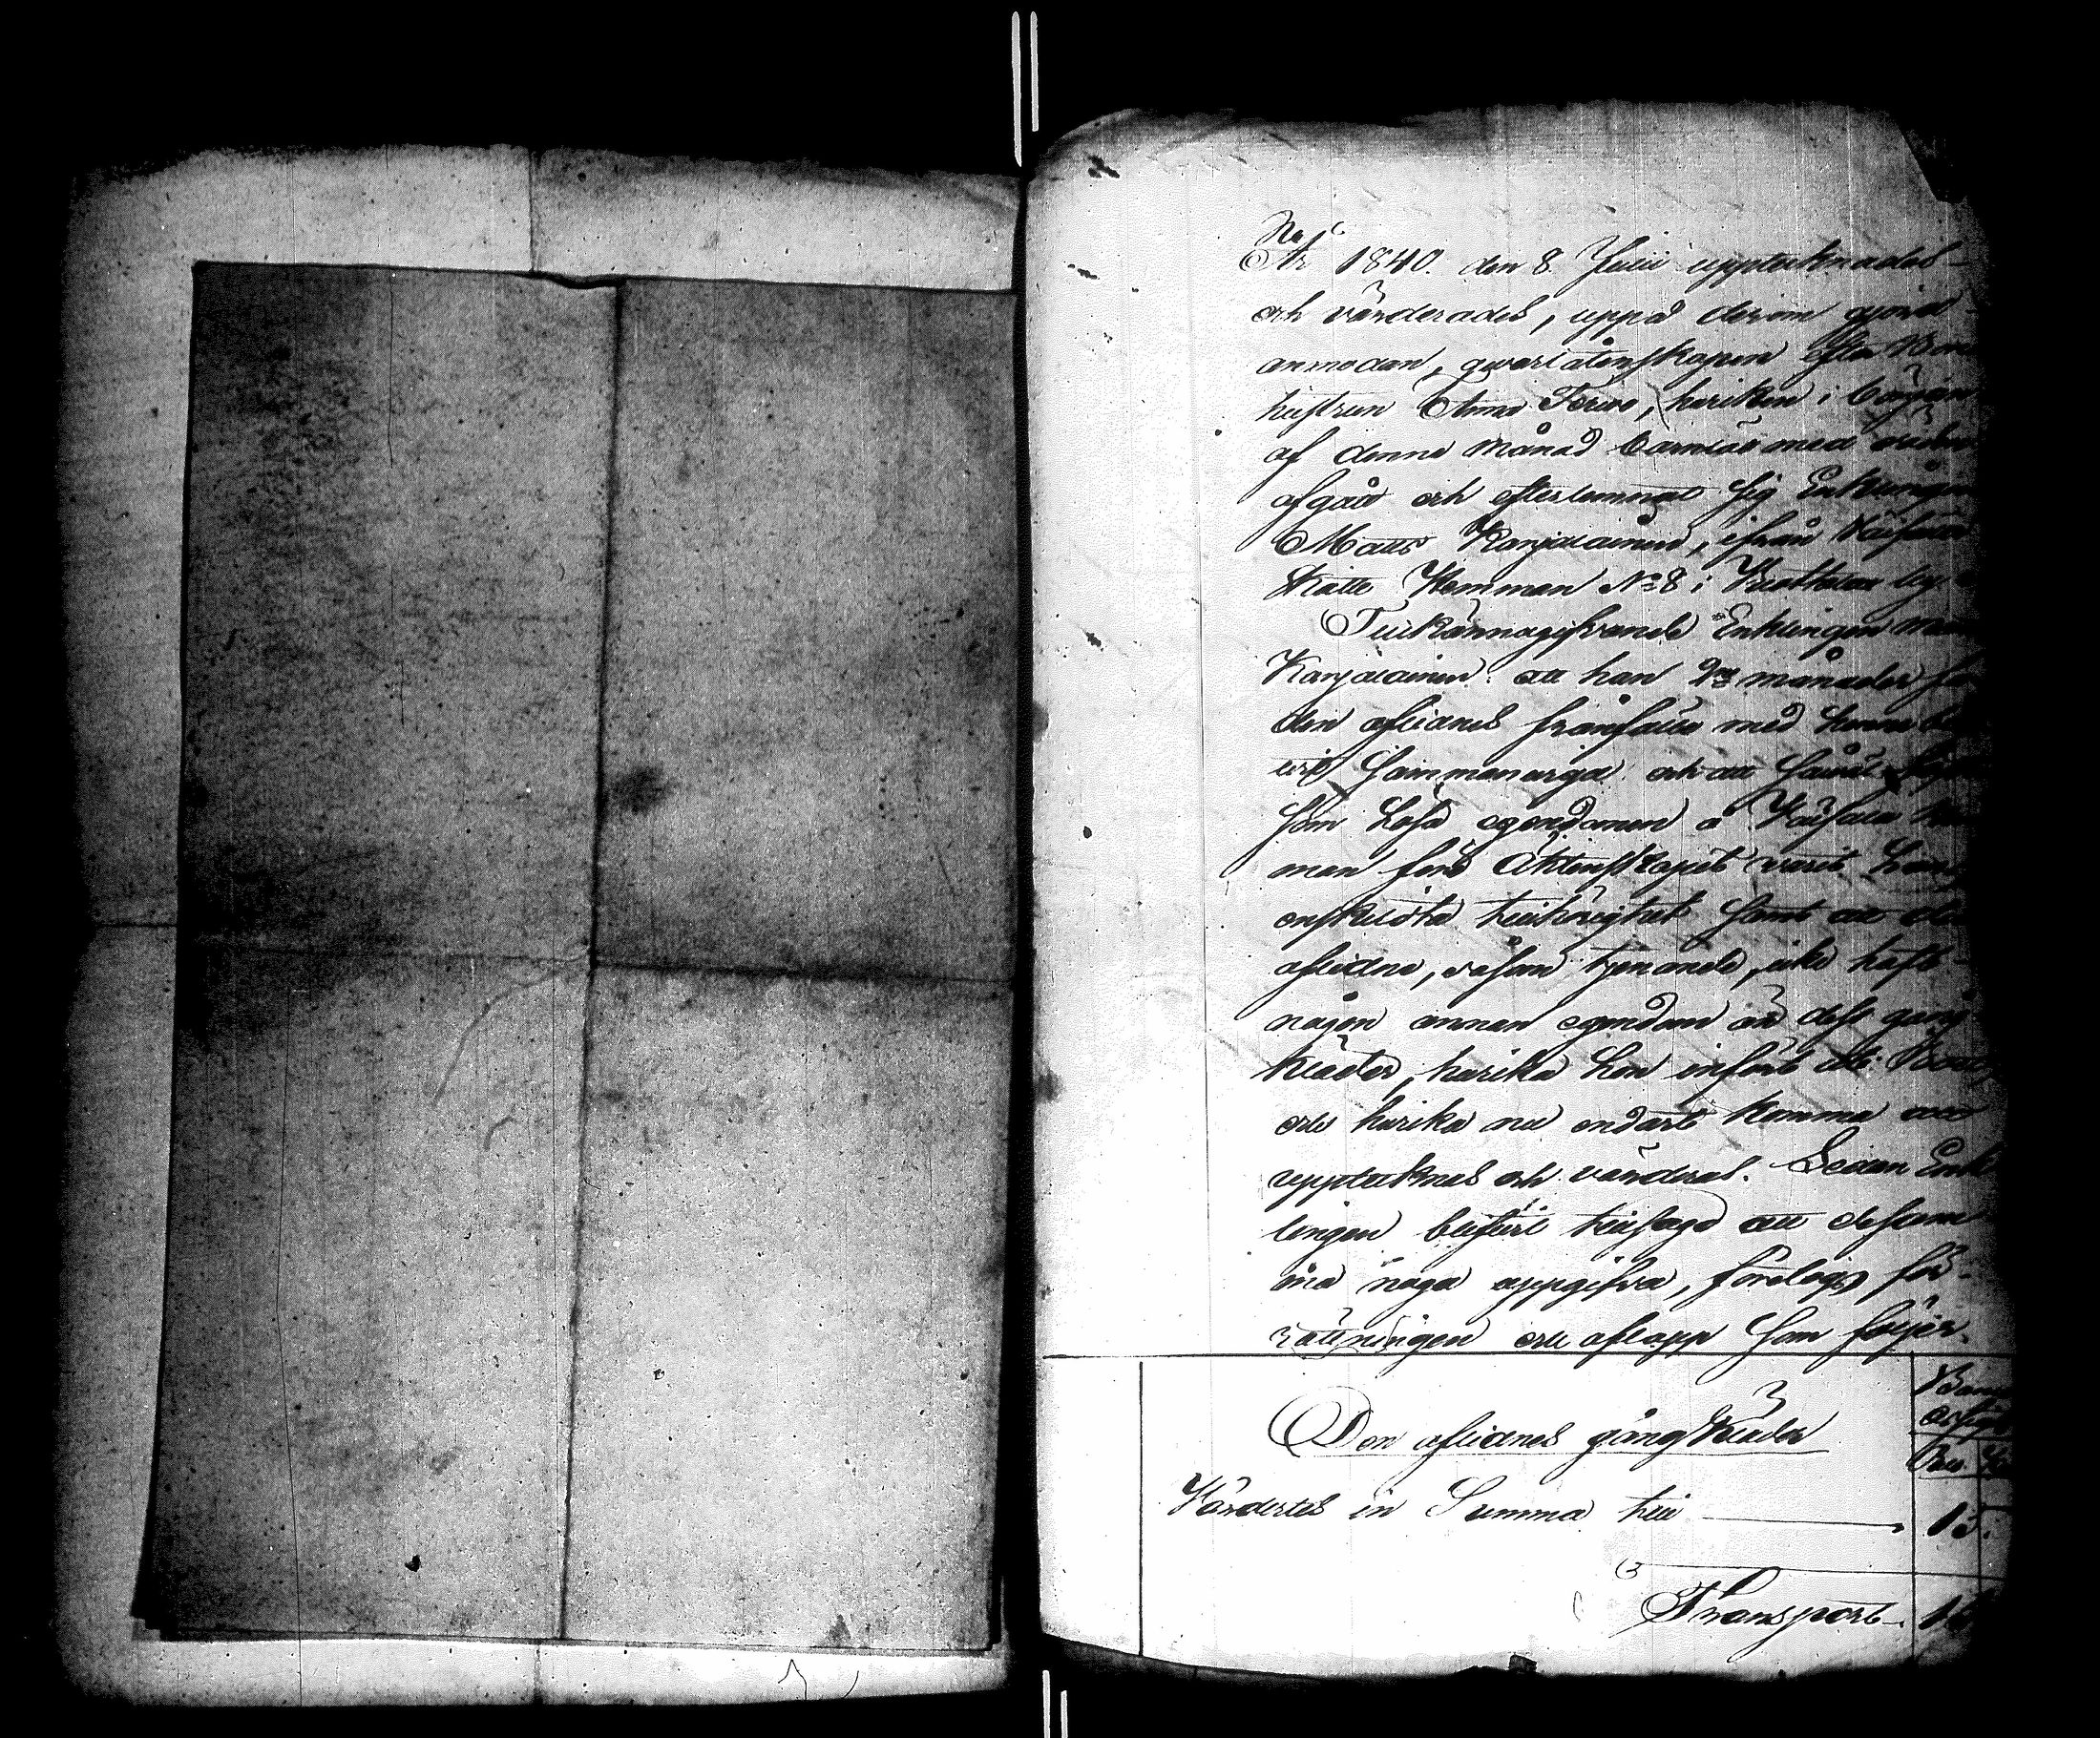 No 1
År 1840. den 8 Julii upptecknades
och värderades, uppå derom gjord
anmodan, qvarlåtenskapen efter
hustrun Anna Tervo, hvilken i början
af denna Månad barnlös med döden
afgått och efterlemnat sig Enklingen
Matts Karjalainen, ifrån
Skatte Hemman No 8 i by.
Tillkännagifvande Enklingen
Karjalainen att han 2ne månader för
den aflidnes frånfälle med henne
sammanviga och att såväl
som Lösa egendomen å
man före Äktenskapet varit hans
enskildta tillhörighet samt att den
aflidne, såsom tjenande, icke haft
någon annan egendom än dess gång
kläder, hvilka hon infört till
och hvilka nu endast komma att
upptecknas och värderas. Sedan Enk
lingen blifvit tillsagd att desamma
noga uppgifva, företogs för-
rättningen och aflopp som följer.
Den aflidnes gångkläder
Värdertes in Summa till 15.
Transport 15